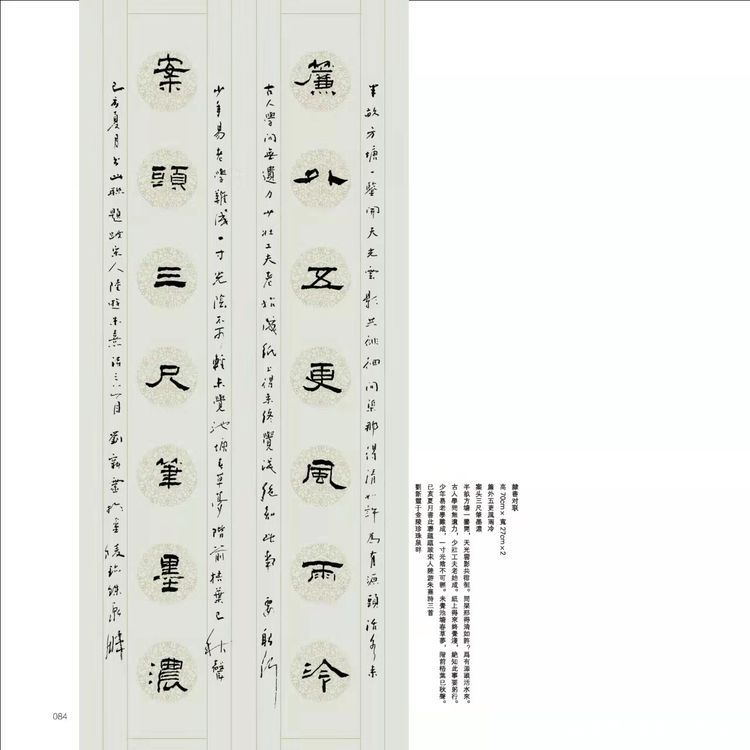 隸書对联
高 70cm× 寬 27cm×2
簾外五更風雨冷
案头三尺筆墨濃
半畝方塘一鑒開，天光雲影共徘徊。問渠那得清如許？爲有源頭活水來。
古人學問無遺力，少壯工夫老始成。紙上得來終覺淺，絶知此事要躬行。
少年易老學難成，一寸光陰不可輕。未覺池塘春草夢，階前梧葉已秋聲。
己亥夏月書此聯題跋宋人陸游朱熹詩三首
于金陵珍珠泉畔
半畝方塘一鑒開天光雲影共徘徊問渠那得清如許為有源頭活水來
簾外五更風雨冷
古人學問無遺力少壯工夫老始成紙上得來終覺淺絶知此事要躬行
少年易老學難成一寸光陰不可輕未覺池塘春草夢階前梧葉已秋聲
案頭三尺筆墨濃
己亥夏月書此聯題跋宋人陸游朱熹詩三首於金陵珍珠泉畔
084